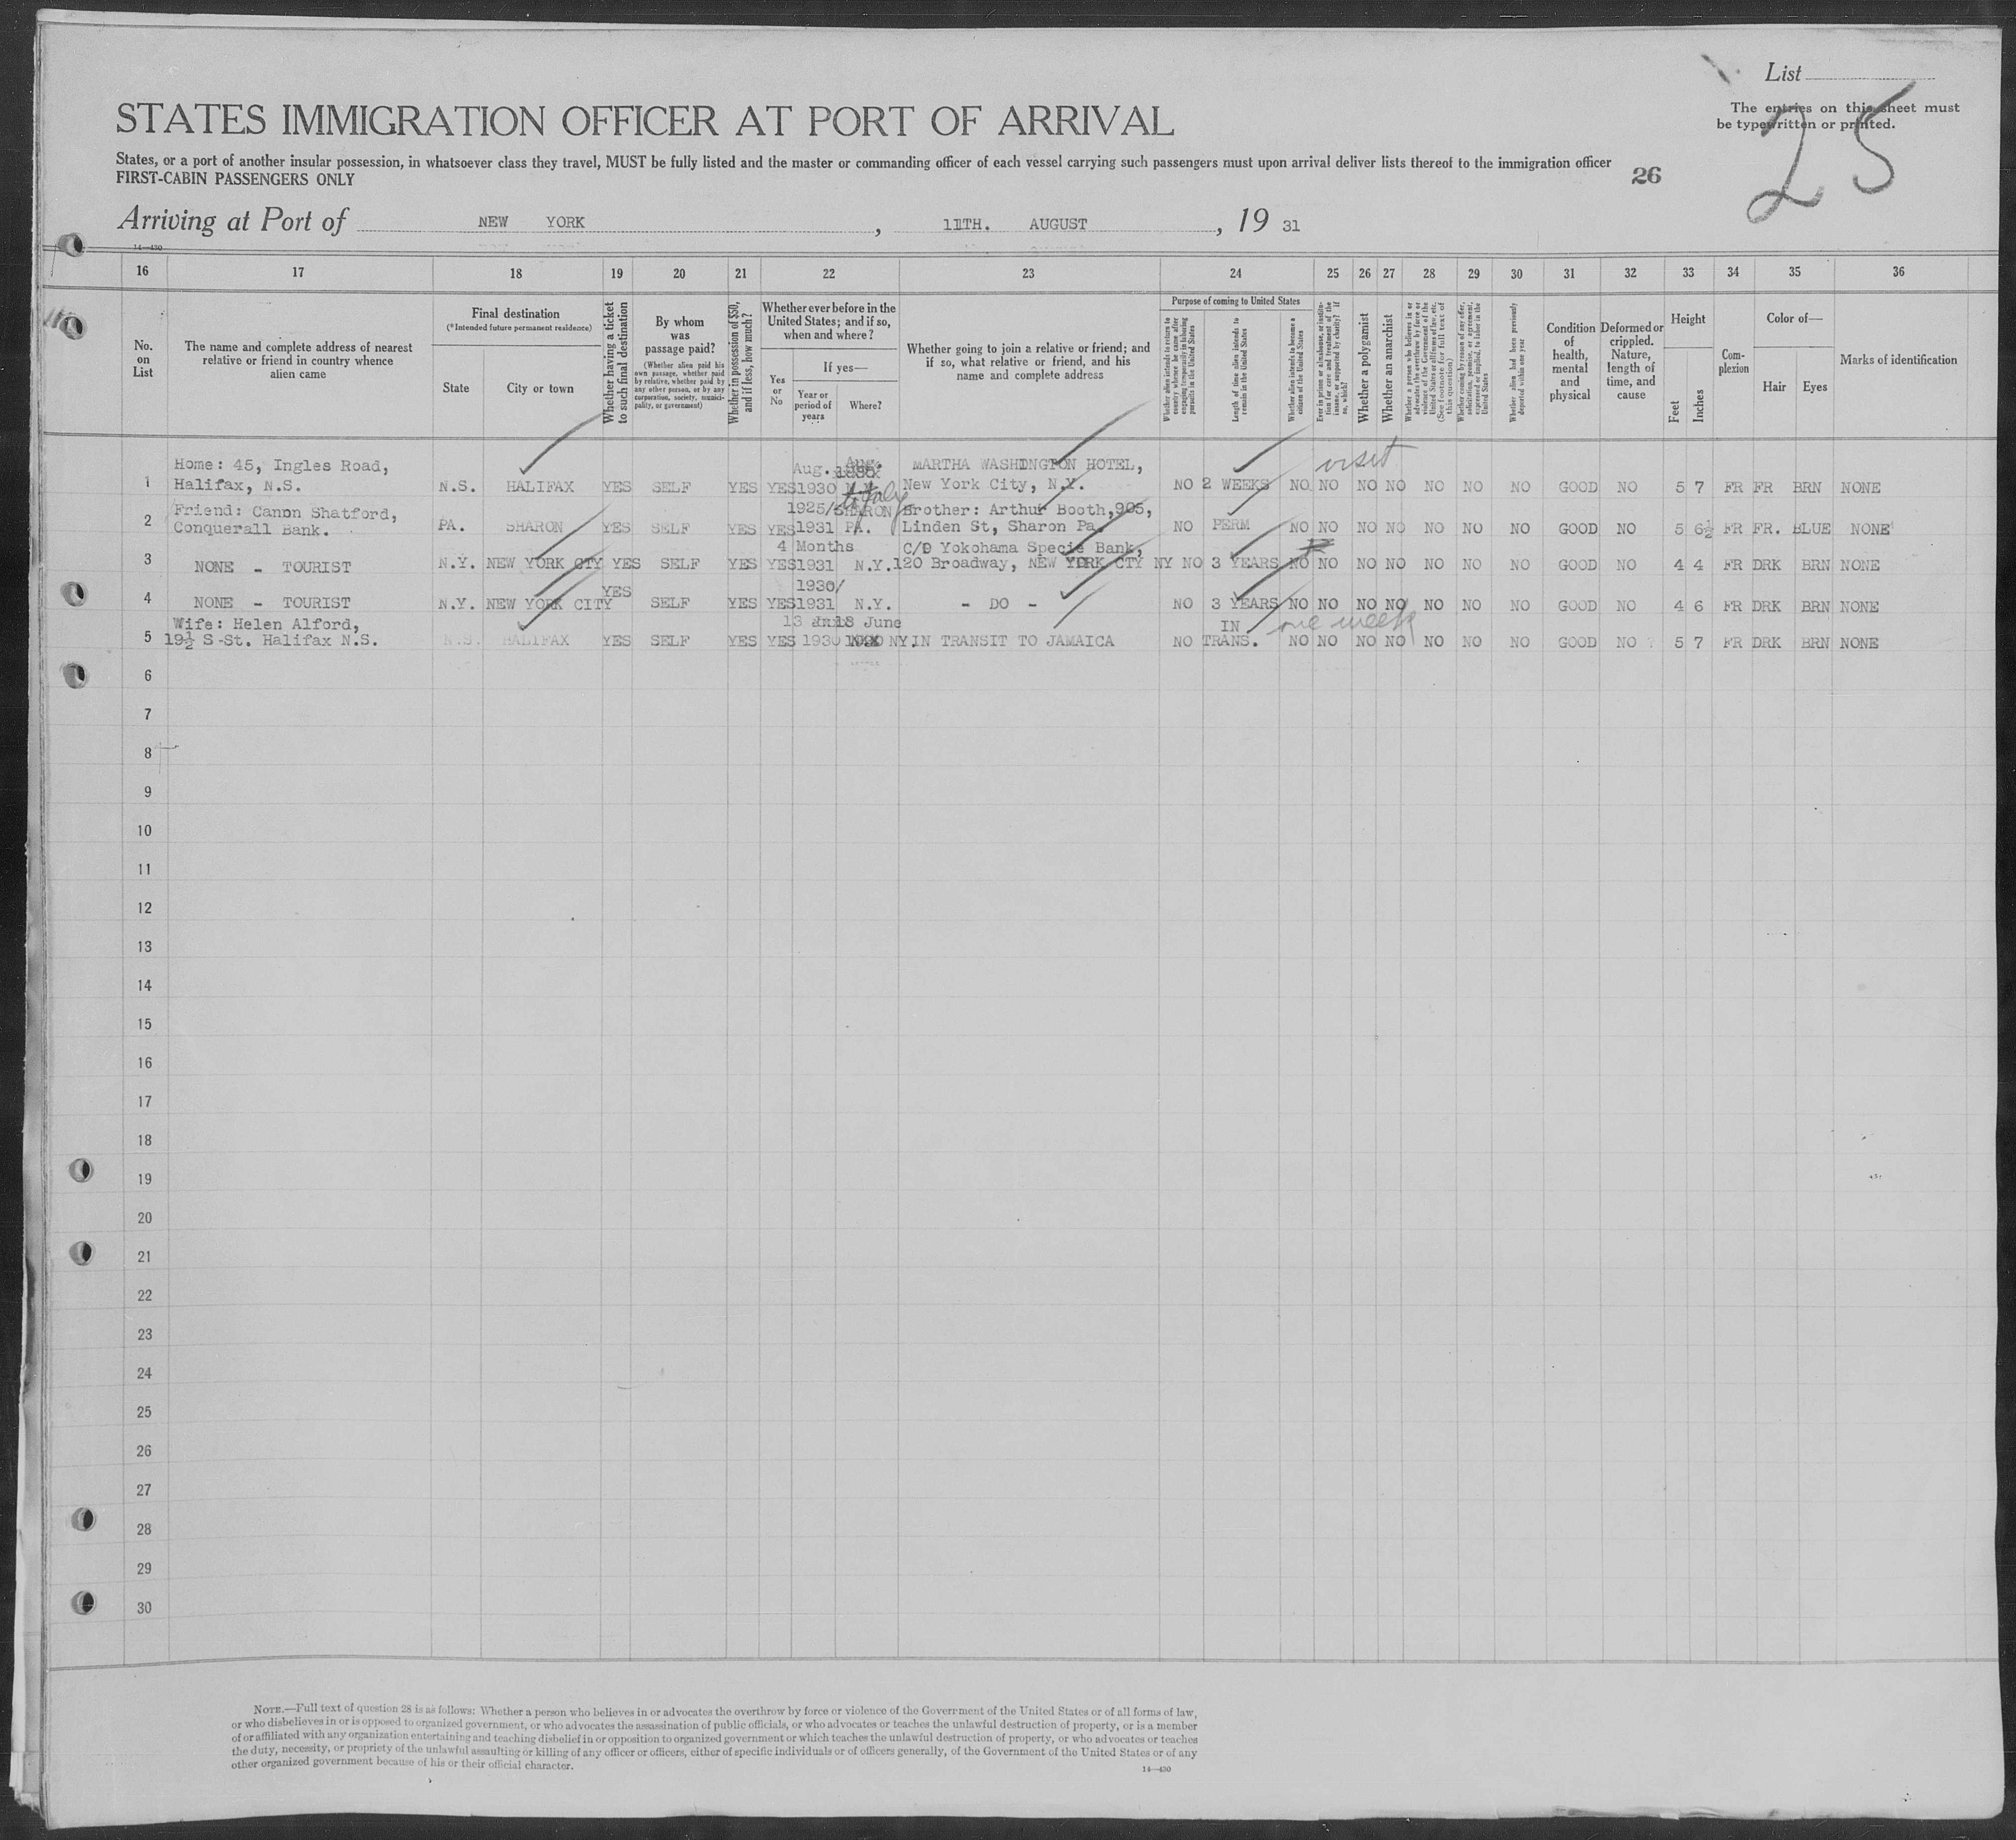 List
The entries on this sheet must
be typewritten or printed.
25
STATES IMMIGRATION OFFICER AT PORT OF ARRIVAL
States, or a port of another insular possession, in whatsoever class they travel, MUST be fully listed and the master or commanding officer of each vessel carrying such passengers must upon arrival deliver lists thereof to the immigration officer
FIRST-CABIN PASSENGERS ONLY
26
Arriving at Port of NEW YORK, 11TH. AUGUST, 19 31
14—430
16 17 18 19 20 21 22 23 24 25 26 27 28 29 30 31 32 33 34 35 36
No. on List
The name and complete address of nearest relative or friend in country whence alien came
Final destination
(*Intended future permanent residence)
State
City or town
Whether having a ticket to such final destination
By whom was passage paid?
(Whether alien paid his own passage, whether paid by relative, whether paid by any other person, or by any corporation, society, municipality, or government)
Whether in possession of $50, and if less, how much?
Whether ever before in the United States; and if so, when and where?
Yes or No
If yes—
Year or period of years
Where?
Whether going to join a relative or friend; and if so, what relative or friend, and his name and complete address
Purpose of coming to United States
Whether alien intends to return to country whence he came after engaging temporarily in laboring pursuits in the United States
Length of time alien intends to remain in the United States
Whether alien intends to become a citizen of the United States
Ever in prison or almshouse, or institution for care and treatment of the insane, or supported by charity? If so, which?
Whether a polygamist
Whether an anarchist
Whether a person who believes in or advocates the overthrow by force or violence of the Government of the United States or all forms of law, etc. (See footnote for full text of this question)
Whether coming by reason of any offer, solicitation, promise, or agreement, expressed or implied, to labor in the United States
Whether alien had been previously deported within one year
Condition of health, mental and physical
Deformed or crippled. Nature, length of time, and cause
Height
Feet
Inches
Complexion
Color of—
Hair
Eyes
Marks of identification
visit
Home: 45, Ingles Road, Aug. Aug. MARTHA WASHINGTON HOTEL,
1 Halifax, N.S. N.S. HALIFAX YES SELF YES YES 1930 New York City, N.Y. NO 2 WEEKS NO NO NO NO NO NO NO GOOD NO 5 7 FR FR BRN NONE
to July
Friend: Canon Shatford, 1925/ SHARON Brother: Arthur Booth, 905,
2 Conquerall Bank. PA. SHARON YES SELF YES YES 1931 PA. Linden St, Sharon Pa. NO PERM NO NO NO NO NO NO NO GOOD NO 5 6½ FR FR. BLUE NONE
4 Months C/O Yokohama Specie Bank,
3 NONE - TOURIST N.Y. NEW YORK CTY YES SELF YES YES 1931 N.Y. 120 Broadway, NEW YORK CTY NY NO 3 YEARS NO NO NO NO NO NO NO GOOD NO 4 4 FR DRK BRN NONE
1930/
4 NONE - TOURIST N.Y. NEW YORK CITY YES SELF YES YES 1931 N.Y. - DO - NO 3 YEARS NO NO NO NO NO NO NO GOOD NO 4 6 FR DRK BRN NONE
Wife: Helen Alford, 13 18 June IN one week
5 19½ S-St. Halifax N.S. N.S. HALIFAX YES SELF YES YES 1930 NY. IN TRANSIT TO JAMAICA NO TRANS. NO NO NO NO NO NO NO GOOD NO 5 7 FR DRK BRN NONE
6
7
8
9
10
11
12
13
14
15
16
17
18
19
20
21
22
23
24
25
26
27
28
29
30
NOTE.—Full text of question 28 is as follows: Whether a person who believes in or advocates the overthrow by force or violence of the Government of the United States or of all forms of law,
or who disbelieves in or is opposed to organized government, or who advocates the assassination of public officials, or who advocates or teaches the unlawful destruction of property, or is a member
of or affiliated with any organization entertaining and teaching disbelief in or opposition to organized government or which teaches the unlawful destruction of property, or who advocates or teaches
the duty, necessity, or propriety of the unlawful assaulting or killing of any officer or officers, either of specific individuals or of officers generally, of the Government of the United States or of any
other organized government because of his or their official character.
14—430